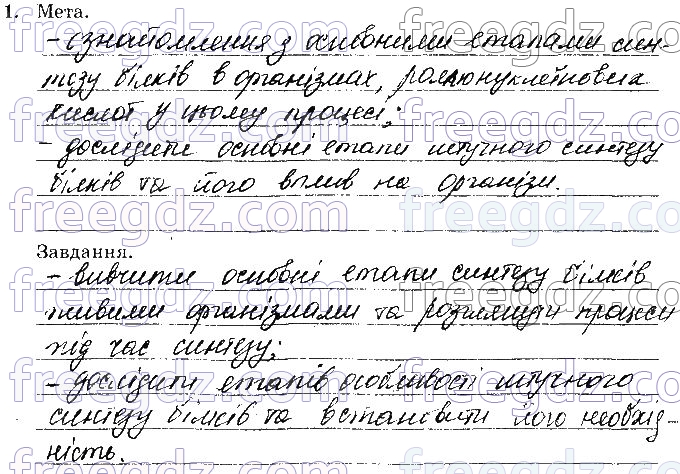 1. Мета.
- ознайомлення з основними етапами син-
тезу білків в організмах, роллю нуклеїнових
кислот у цьому процесі;
- дослідити основні етапи штучного синтезу
білків та його вплив на організм.
Завдання.
- вивчити основні етапи синтезу білків
живими організмами та розглянути процеси
під час синтезу;
- дослідити етапів особливості штучного
синтезу білків та встановити його необхід-
ність.
freegdz.com